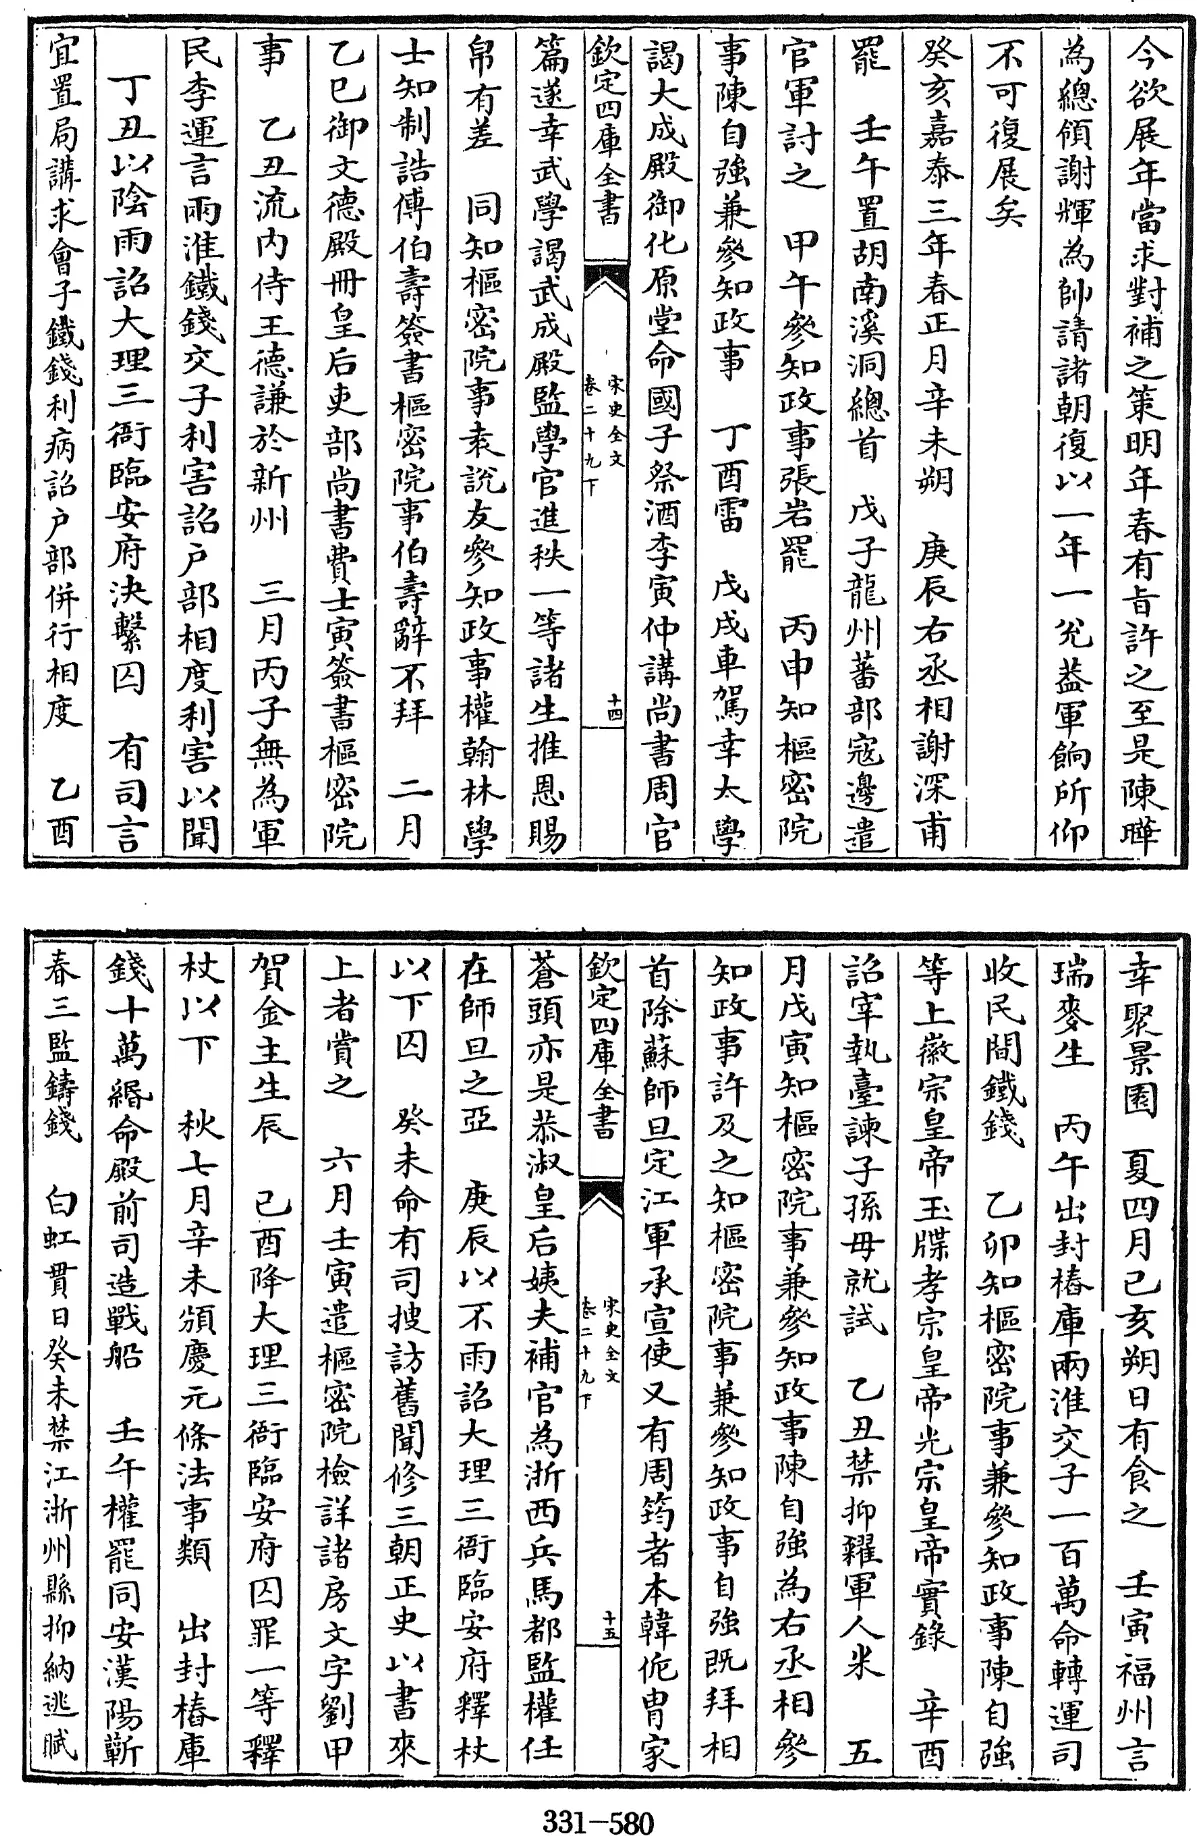 今欲展年當求對補之策明年春有旨許之至是陳曄
為總領謝輝為帥請諸朝復以一年一兊葢軍餉所仰
不可復展矣
癸亥嘉泰三年春正月辛未朔　庚辰右丞相謝深甫
罷　壬午置胡南溪洞總首　戊子龍州蕃部寇邊遣
官軍討之　甲午參知政事張岩罷　丙申知樞密院
事陳自強兼參知政事　丁酉雷　戊戌車駕幸太學
謁大成殿御化原堂命國子祭酒李寅仲講尚書周官
欽定四庫全書
宋史全文
卷二十九下
十四
篇遂幸武學謁武成殿監學官進秩一等諸生推恩賜
帛有差　同知樞密院事袁說友參知政事權翰林學
士知制誥傅伯壽簽書樞密院事伯壽辭不拜　二月
乙巳御文德殿冊皇后吏部尚書費士寅簽書樞密院
事　乙丑流內侍王德謙於新州　三月丙子無為軍
民李運言兩淮鐵錢交子利害詔户部相度利害以聞
丁丑以陰雨詔大理三衙臨安府決繫囚　有司言
宜置局講求會子鐵錢利病詔户部併行相度　乙酉
幸聚景園　夏四月己亥朔日有食之　壬寅福州言
瑞麥生　丙午出封樁庫兩淮交子一百萬命轉運司
收民間鐵錢　乙卯知樞密院事兼參知政事陳自強
等上徽宗皇帝玉牒孝宗皇帝光宗皇帝實錄　辛酉
詔宰執臺諫子孫毋就試　乙丑禁抑糴軍人米　五
月戊寅知樞密院事兼參知政事陳自強為右丞相參
知政事許及之知樞密院事兼參知政事自強既拜相
首除蘇師旦定江軍承宣使又有周筠者本韓侂胄家
欽定四庫全書
宋史全文
卷二十九下
十五
蒼頭亦是恭淑皇后姨夫補官為浙西兵馬都監權任
在師旦之亞　庚辰以不雨詔大理三衙臨安府釋杖
以下囚　癸未命有司搜訪舊聞修三朝正史以書來
上者賞之　六月壬寅遣樞密院檢詳諸房文字劉甲
賀金主生辰　己酉降大理三衙臨安府囚罪一等釋
杖以下　秋七月辛未頒慶元條法事類　出封樁庫
錢十萬緡命殿前司造戰船　壬午權罷同安漢陽蘄
春三監鑄錢　白虹貫日癸未禁江浙州縣抑納逃賦
331-580